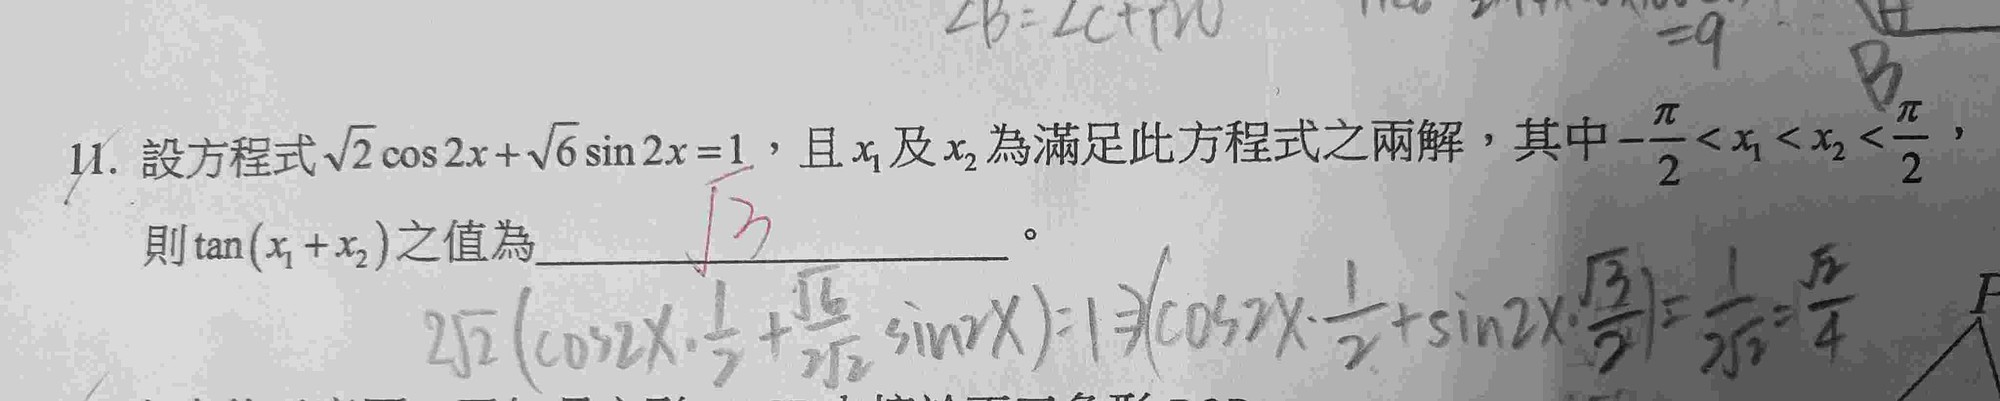 ∠B=∠C+
=9
B
11. 設方程式√2cos2x+√6sin2x=1，且x₁及x₂為滿足此方程式之兩解，其中-π/2<x₁<x₂<π/2，
則tan(x₁+x₂)之值為 √3 。
2√2(cos2x·1/2+√6/2√2 sin2x)=1⇒(cos2x·1/2+sin2x·√3/2)=1/2√2=√2/4